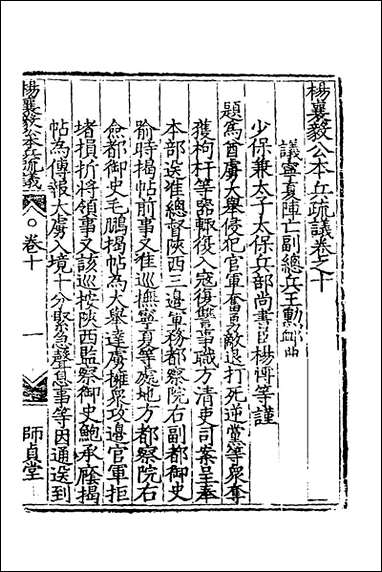 楊襄毅公本兵疏議卷之十
議寧夏陣亡副總兵王勳卹典
少保兼太子太保兵部尚書臣楊博等謹
題為酋虜大舉侵犯官軍奮勇敵退打死逆黨等衆奪
獲枸杆等器輙復入寇復讐事職方清吏司案呈奉
本部送准總督陝西三邊軍務都察院右副都御史
喻時揭帖前事又准巡撫寧夏等處地方都察院右
僉都御史毛鵬揭帖為大舉達虜擁衆攻邊官軍拒
堵損折將領事又該巡按陝西監察御史鮑承廕揭
帖為傳報大虜入境十分緊急聲息事等因通送到
楊襄毅公本兵疏議
卷十
一
師貞堂